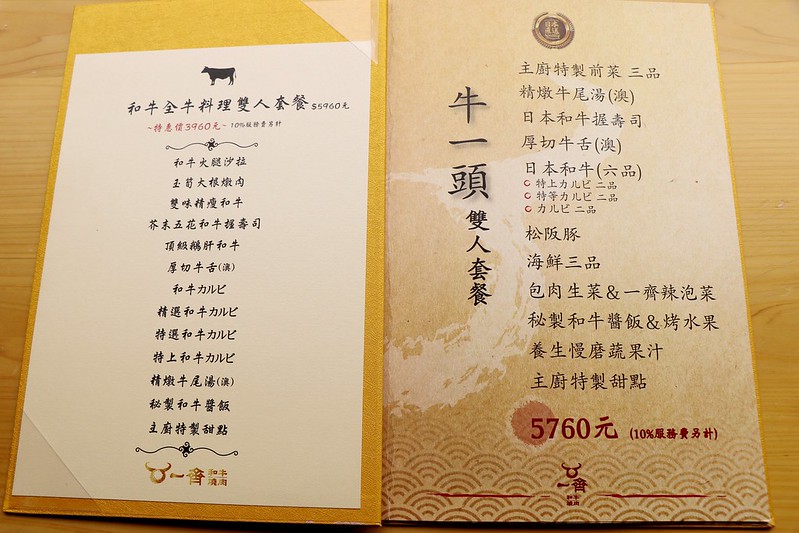 和牛全牛料理雙人套餐 $5960元
~特惠價3960元~ 10%服務費另計
和牛火腿沙拉
玉筍大根燉肉
雙味精瘦和牛
芥末五花和牛握壽司
頂級鵝肝和牛
厚切牛舌(澳)
和牛カルビ
精選和牛カルビ
特選和牛カルビ
特上和牛カルビ
精燉牛尾湯(澳)
秘製和牛醬飯
主廚特製甜點
一齊 和牛燒肉
日本直送
牛一頭 雙人套餐
主廚特製前菜 三品
精燉牛尾湯(澳)
日本和牛握壽司
厚切牛舌(澳)
日本和牛(六品)
特上カルビ 二品
特等カルビ 二品
カルビ 二品
松阪豚
海鮮三品
包肉生菜&一齊辣泡菜
秘製和牛醬飯&烤水果
養生慢磨蔬果汁
主廚特製甜點
5760元 (10%服務費另計)
一齊
和牛
燒肉